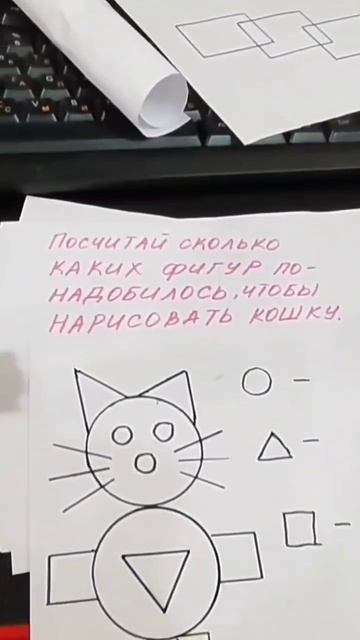 ПОСЧИТАЙ СКОЛЬКО
КАКИХ ФИГУР ПО-
НАДОБИЛОСЬ, ЧТОБЫ
НАРИСОВАТЬ КОШКУ.